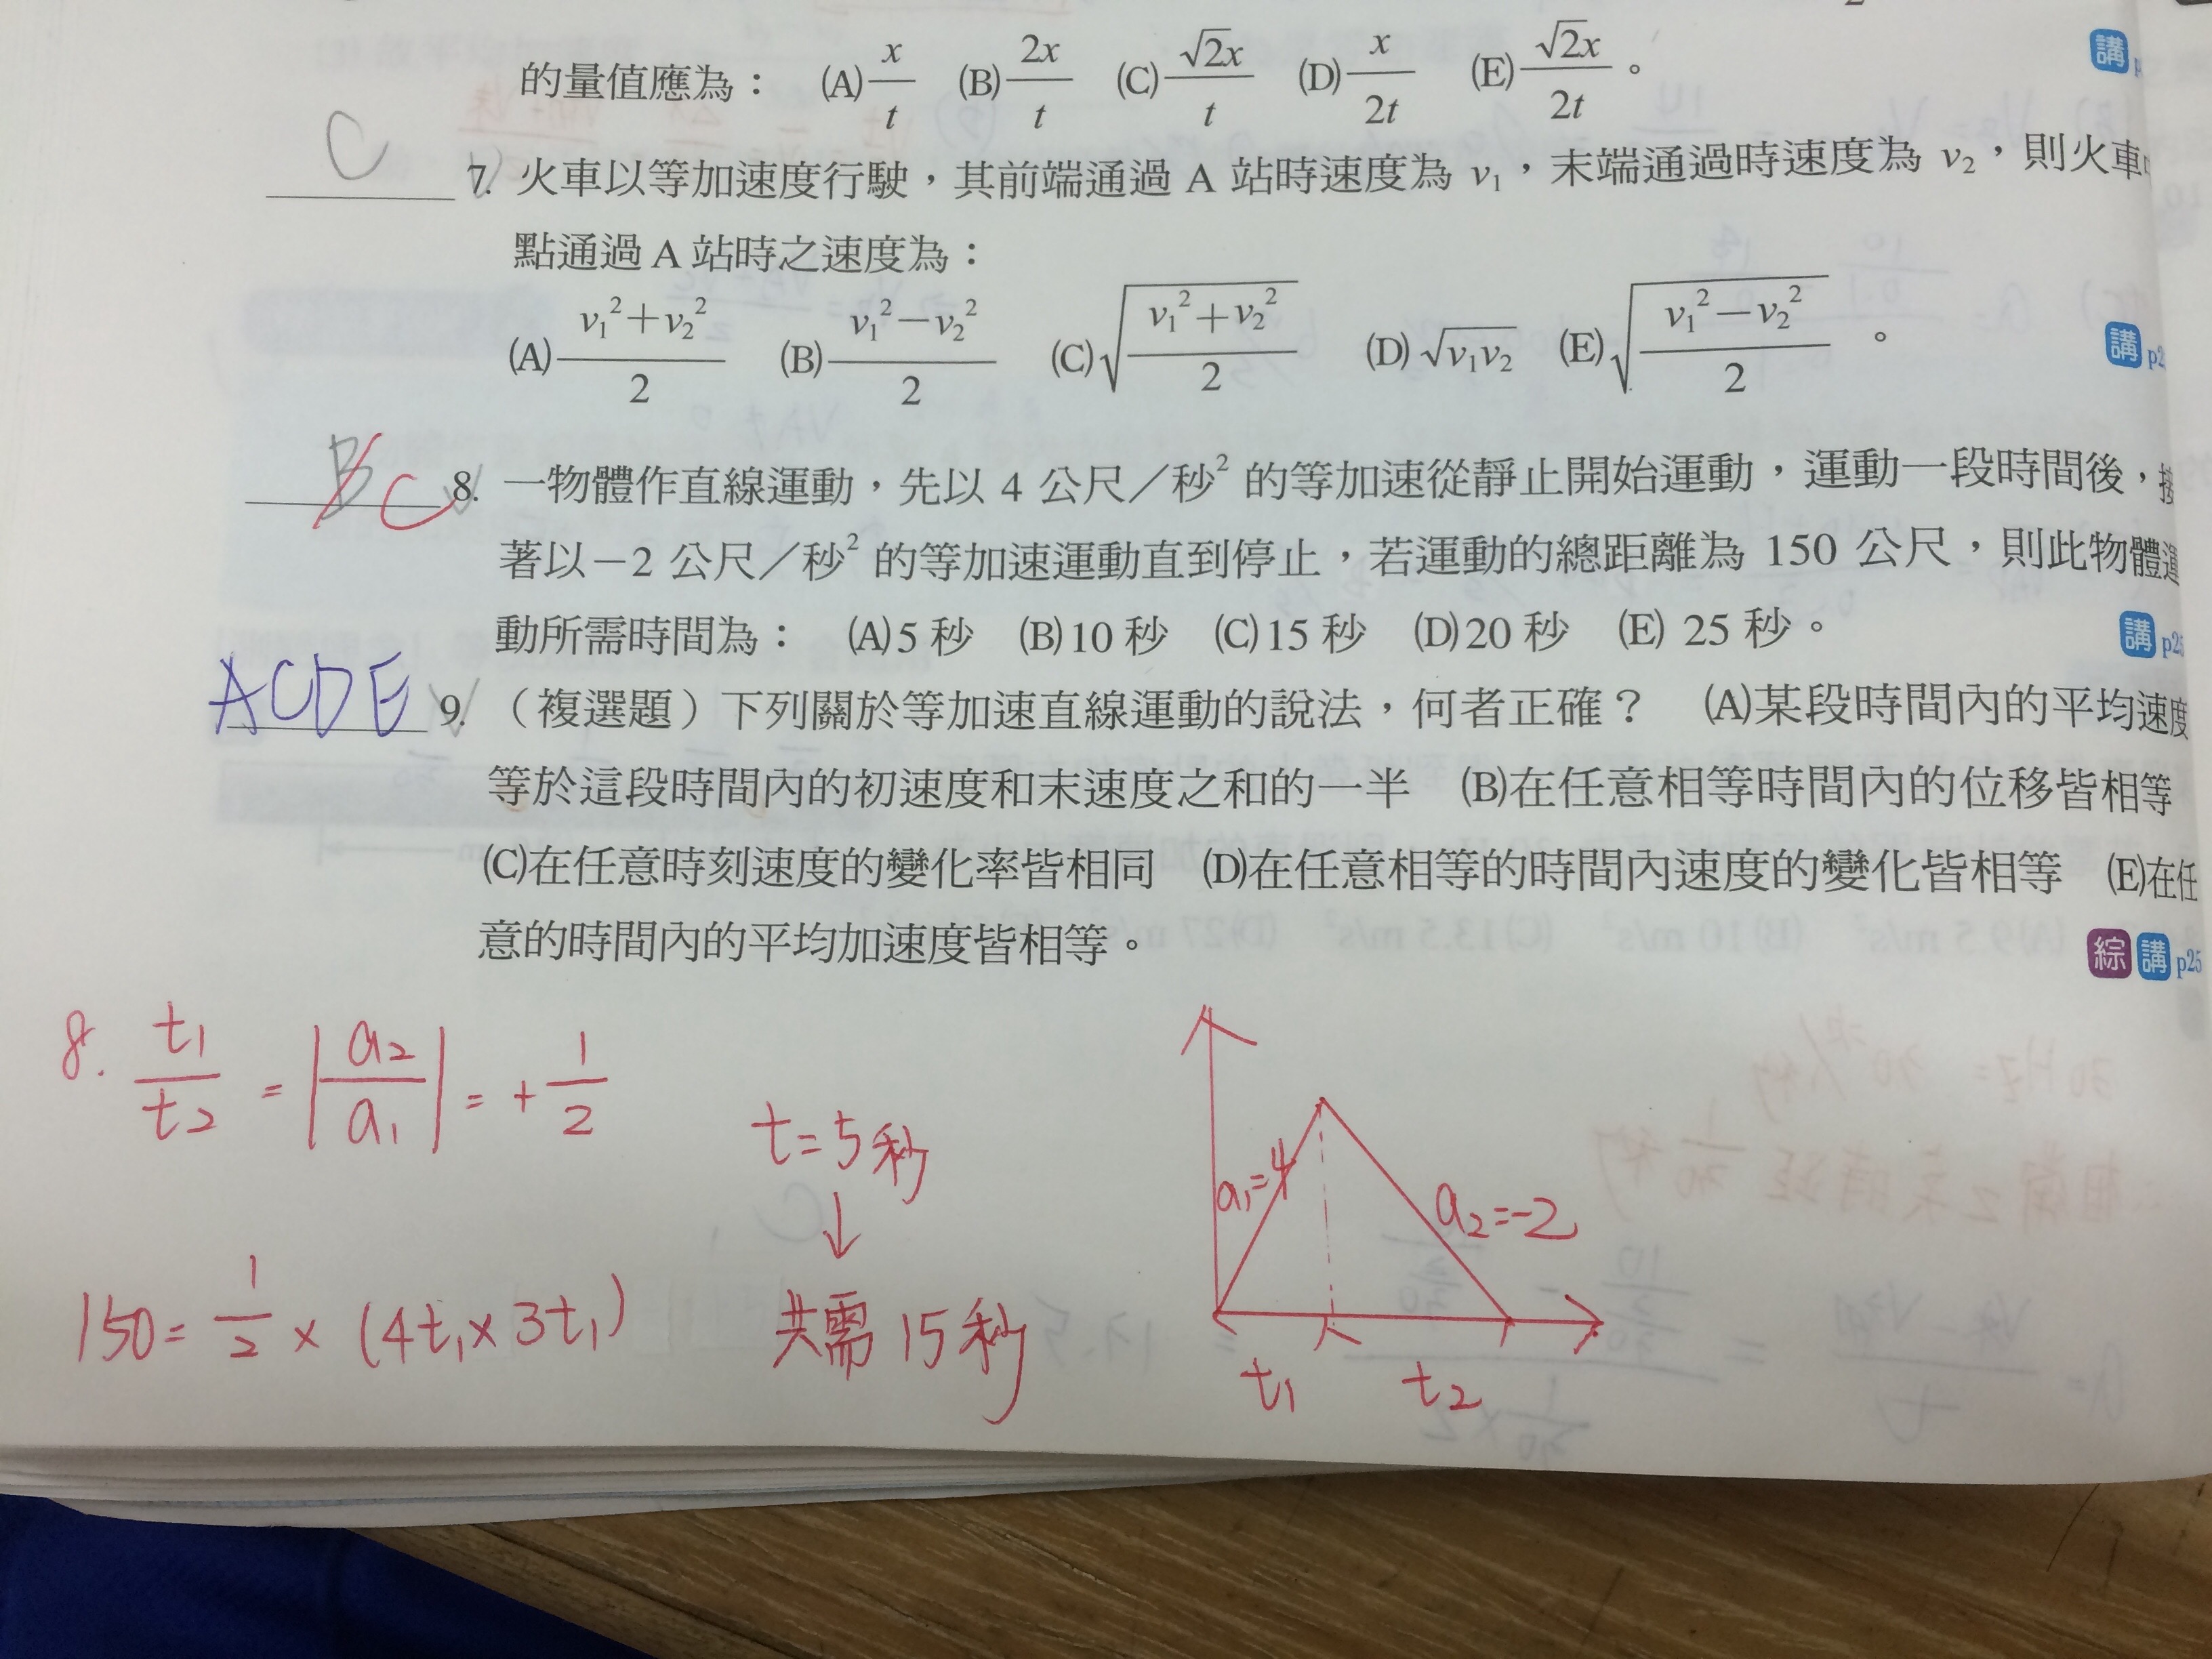 的量值應為： (A) x/t (B) 2x/t (C) √2x/t (D) x/2t (E) √2x/2t 。 講
C 7. 火車以等加速度行駛，其前端通過 A 站時速度為 v₁，末端通過時速度為 v₂，則火車
點通過 A 站時之速度為：
(A) (v₁²+v₂²)/2 (B) (v₁²−v₂²)/2 (C) √((v₁²+v₂²)/2) (D) √(v₁v₂) (E) √((v₁²−v₂²)/2) 。 講 p2
B C 8. 一物體作直線運動，先以 4 公尺／秒² 的等加速從靜止開始運動，運動一段時間後，接
著以－2 公尺／秒² 的等加速運動直到停止，若運動的總距離為 150 公尺，則此物體運
動所需時間為： (A)5 秒 (B)10 秒 (C)15 秒 (D)20 秒 (E) 25 秒。 講 p25
ACDE 9. （複選題）下列關於等加速直線運動的說法，何者正確？ (A)某段時間內的平均速度
等於這段時間內的初速度和末速度之和的一半 (B)在任意相等時間內的位移皆相等
(C)在任意時刻速度的變化率皆相同 (D)在任意相等的時間內速度的變化皆相等 (E)在任
意的時間內的平均加速度皆相等。 綜 講 p25
8. t₁/t₂ = |a₂/a₁| = + 1/2
t=5秒
↓
150 = 1/2 × (4t₁ × 3t₁)
共需 15秒
a₁=4
a₂=-2
t₁ t₂